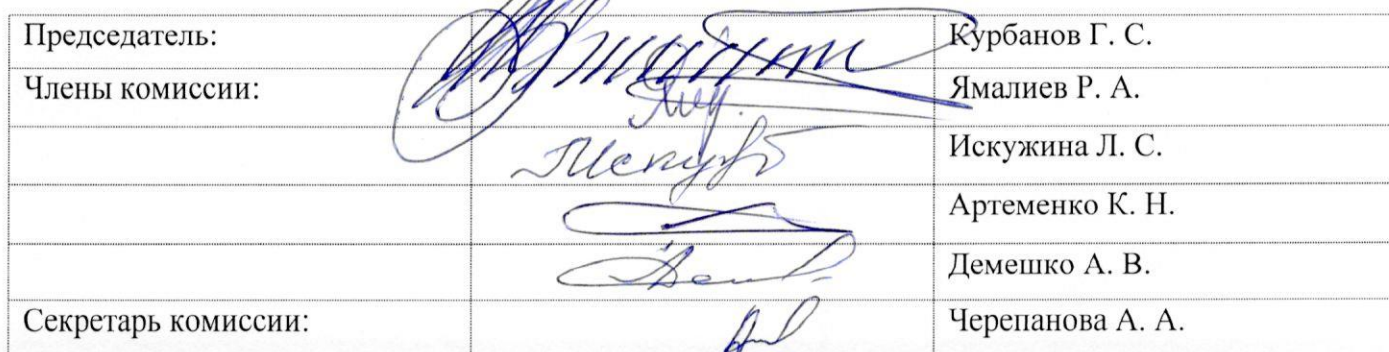 Председатель: Курбанов Г. С.
Члены комиссии: Ямалиев Р. А.
Искужина Л. С.
Артеменко К. Н.
Демешко А. В.
Секретарь комиссии: Черепанова А. А.